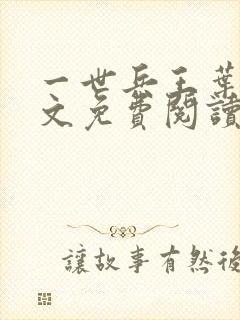 一世兵王葉
文免費閱讀
讓故事有然後